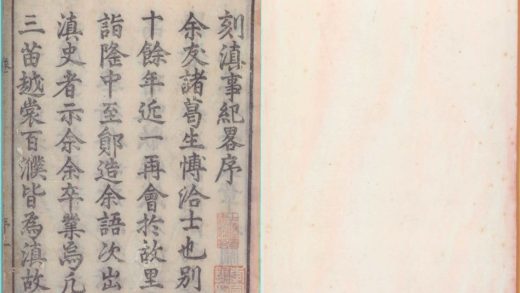 刻滇事紀畧序
余友諸葛生博洽士也別
十餘年近一再會於故里
詣隆中至鄖造余語次出
滇史者示余余卒業焉凡
三苗越裳百濮皆為滇故